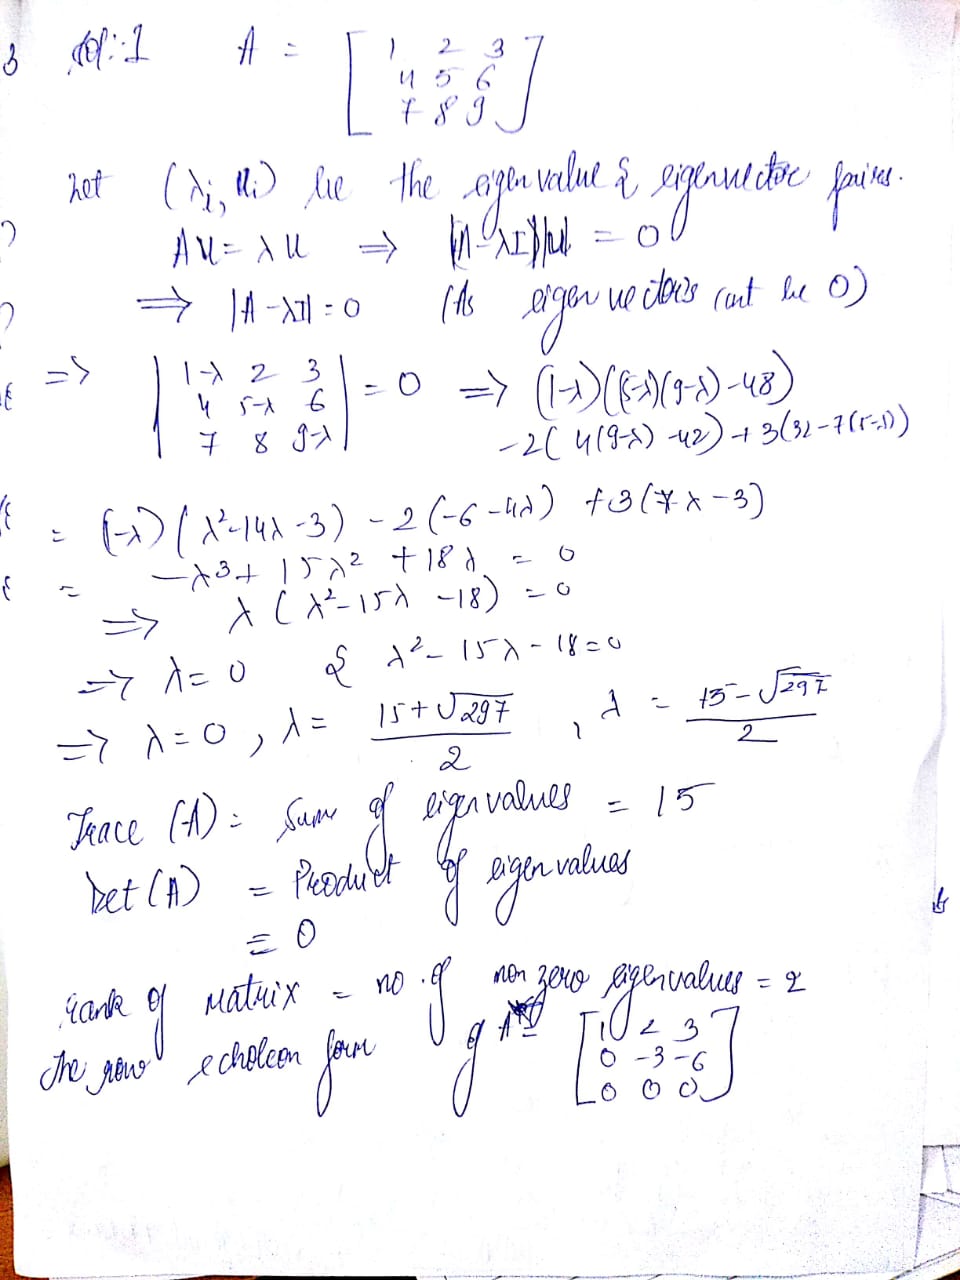 Sol:-1 A = [ 1 2 3
4 5 6
7 8 9 ]
Let (λi, ui) be the eigen value & eigenvector pairs.
Au = λu ⇒ |A-λI||u| = 0
⇒ |A-λI| = 0 (As eigen vectors cant be 0)
⇒ | 1-λ 2 3 | = 0 ⇒ (1-λ)((5-λ)(9-λ)-48)
4 5-λ 6
7 8 9-λ
-2(4(9-λ)-42)+3(32-7(5-λ))
= (1-λ)(λ²-14λ-3) -2(-6-4λ) +3(7λ-3)
= -λ³+15λ²+18λ = 0
⇒ λ(λ²-15λ-18) = 0
⇒ λ=0 & λ²-15λ-18=0
⇒ λ=0, λ= (15+√297)/2, λ = (15-√297)/2
Trace (A) = Sum of eigen values = 15
Det (A) = Product of eigen values
= 0
rank of matrix = no. of non zero eigenvalues = 2
The row echoleon form of A = [ 1 2 3
0 -3 -6
0 0 0 ]